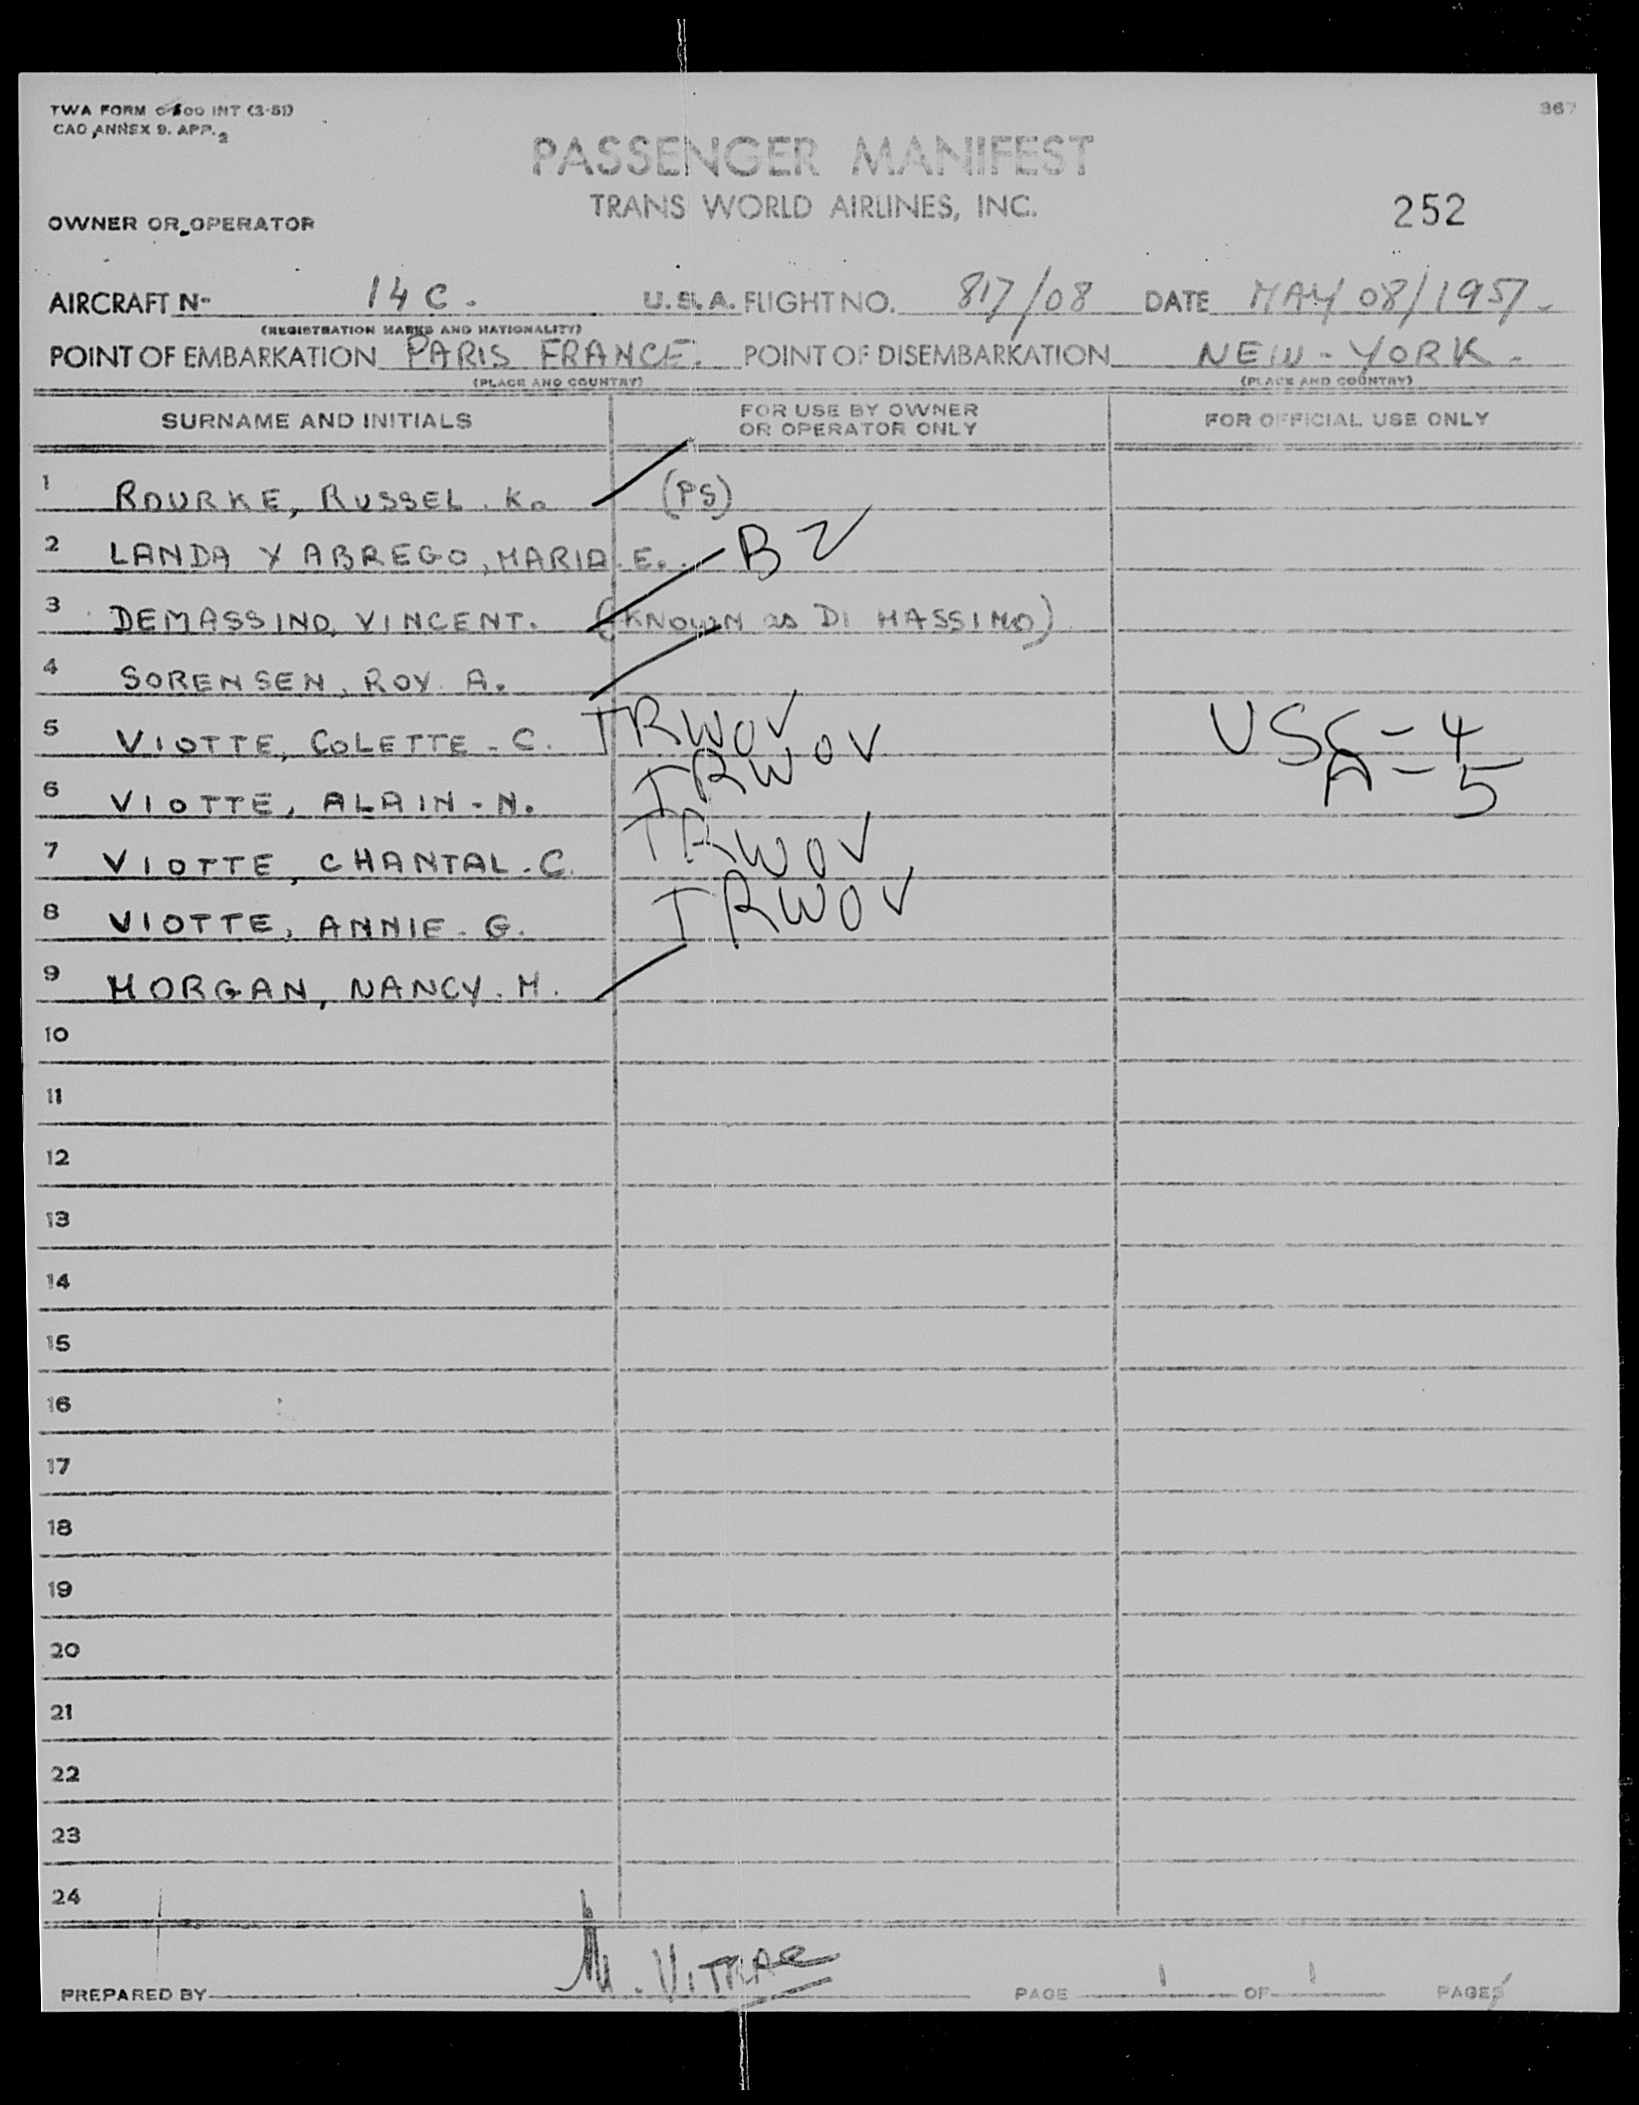 TWA FORM 0-800 INT (3-51)
CAO ANNEX 9. APP. 2
367
PASSENGER MANIFEST
TRANS WORLD AIRLINES, INC.
252
OWNER OR OPERATOR
AIRCRAFT Nº 14 C. U.S.A. FLIGHT NO. 817/08 DATE MAY 08/1957.
(REGISTRATION MARKS AND NATIONALITY)
POINT OF EMBARKATION PARIS FRANCE. POINT OF DISEMBARKATION NEW-YORK.
(PLACE AND COUNTRY) (PLACE AND COUNTRY)
SURNAME AND INITIALS FOR USE BY OWNER OR OPERATOR ONLY FOR OFFICIAL USE ONLY
1 ROURKE, RUSSEL. K. (PS)
2 LANDA Y ABREGO, MARIA E. B2
3 DEMASSINO, VINCENT. (KNOWN as DI MASSIMO)
4 SORENSEN, ROY A.
5 VIOTTE, COLETTE-C. TRWOV USC-4
6 VIOTTE, ALAIN-N. TRWOV A-5
7 VIOTTE, CHANTAL-C. TRWOV
8 VIOTTE, ANNIE-G. TRWOV
9 MORGAN, NANCY. M.
10
11
12
13
14
15
16
17
18
19
20
21
22
23
24
PREPARED BY M. VITRAC PAGE 1 OF 1 PAGES